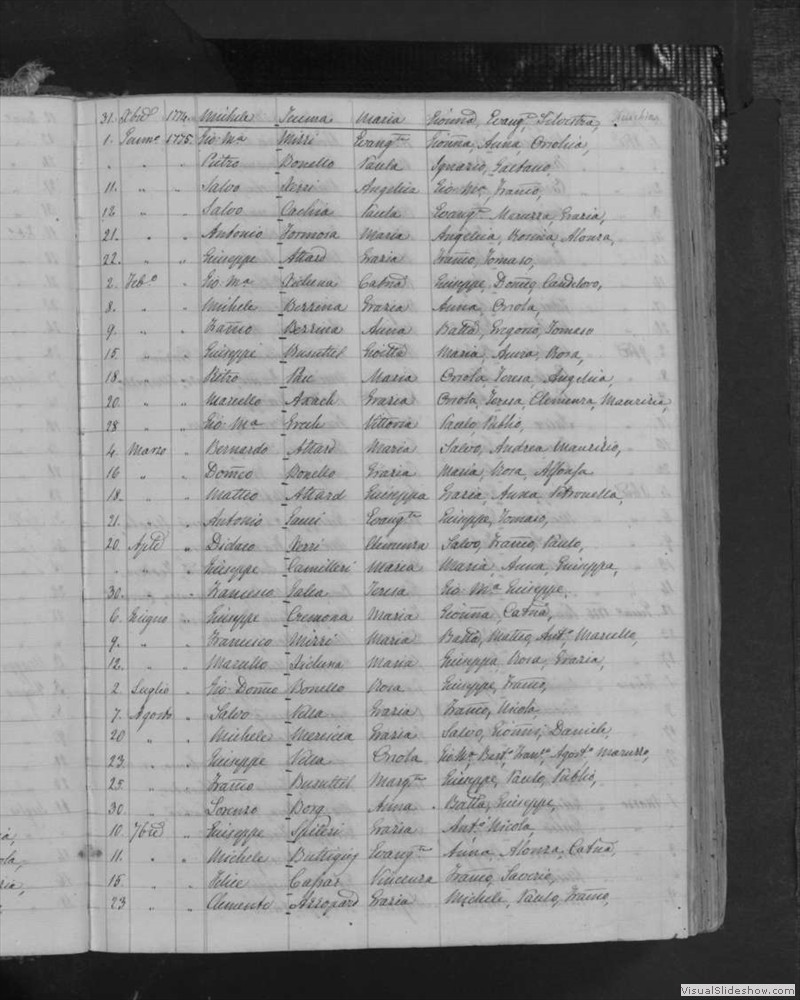 31. Xbre 1774 Michele Maria Gionna, Evangta Silvestra,
1. Genno 1775. Gio Ma Mizzi Evangta Gionna, Anna Orsolia,
" " " Pietro Bonello Paula Ignazio, Gaetano,
11. " " Salvo Xerri Angelica Gio Ma, Franco,
12 " " Salvo Cachia Paula Evangta Maruzza, Grazia,
21. " " Antonio Formosa Maria Angelica, Alonza,
22. " " Giuseppe Attard Grazia Franco, Tomaso,
2. Febo " Gio Ma Xicluna Catna Giuseppe, Domco, Candeloro,
8. " " Michele Bezzina Grazia Anna, Orsola,
9. " " Franco Bezzina Anna Batta, Gregorio, Tomaso
15. " " Giuseppe Busuttil Maria, Anna, Rosa,
18. " " Pietro Maria Orsola, Teresa, Angelica,
20. " " Marcello Axiach Grazia Orsola, Teresa, Clemenza, Maurizia,
28 " " Gio Ma Vittoria Paulo, Publio,
4. Marzo " Bernardo Attard Maria Salvo, Andrea, Maurizio,
16 " " Domco Bonello Grazia Maria, Rosa,
18. " " Matteo Attard Giuseppa Grazia, Anna, Petronella,
21. " " Antonio Gauci Evangta Giuseppe, Tomaso,
20. Aple " Didaco Xerri Clemenza Salvo, Franco, Paulo,
" " " Giuseppe Camilleri Maria Maria, Anna, Giuseppa,
30. " " Francesco Galea Teresa Gio Ma, Giuseppe,
6. Giugno " Giuseppe Cremona Maria Gionna, Catna,
9. " " Francesco Mizzi Maria Batta, Matteo, Anto, Marcello,
12. " " Marcello Xicluna Maria Giuseppa, Rosa, Grazia,
2. Luglio " Gio Domco Bonello Rosa Giuseppe, Franco,
7. Agosto " Salvo Vella Grazia Franco, Nicola,
20 " " Michele Mercieca Grazia Salvo, Gionni, Daniele,
23. " " Giuseppe Vella Orsola Gio Ma, Agosto,
25. " " Franco Busuttil Margta Giuseppe, Paulo, Publio,
30. " " Lorenzo Borg Anna Batta, Giuseppe,
10. 7bre " Giuseppe Spiteri Grazia Anto, Nicola,
11. " " Michele Buttigieg Evangta Anna, Alonza, Catna,
15. " " Felice Caspar Vincenza Franco, Saverio,
23 " " Clemente Azzopard Grazia Michele, Paulo, Franco,
VisualSlideshow.com